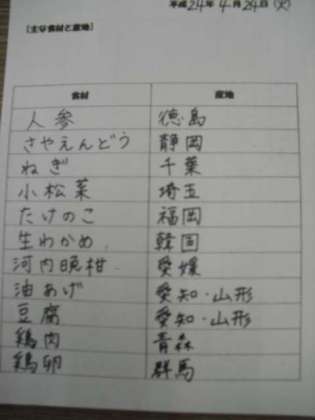 平成24年4月24日(火)
[主な食材と産地]
食材 産地
人参 徳島
さやえんどう 静岡
ねぎ 千葉
小松菜 埼玉
たけのこ 福岡
生わかめ 韓国
河内晩柑 愛媛
油あげ 愛知・山形
豆腐 愛知・山形
鶏肉 青森
鶏卵 群馬